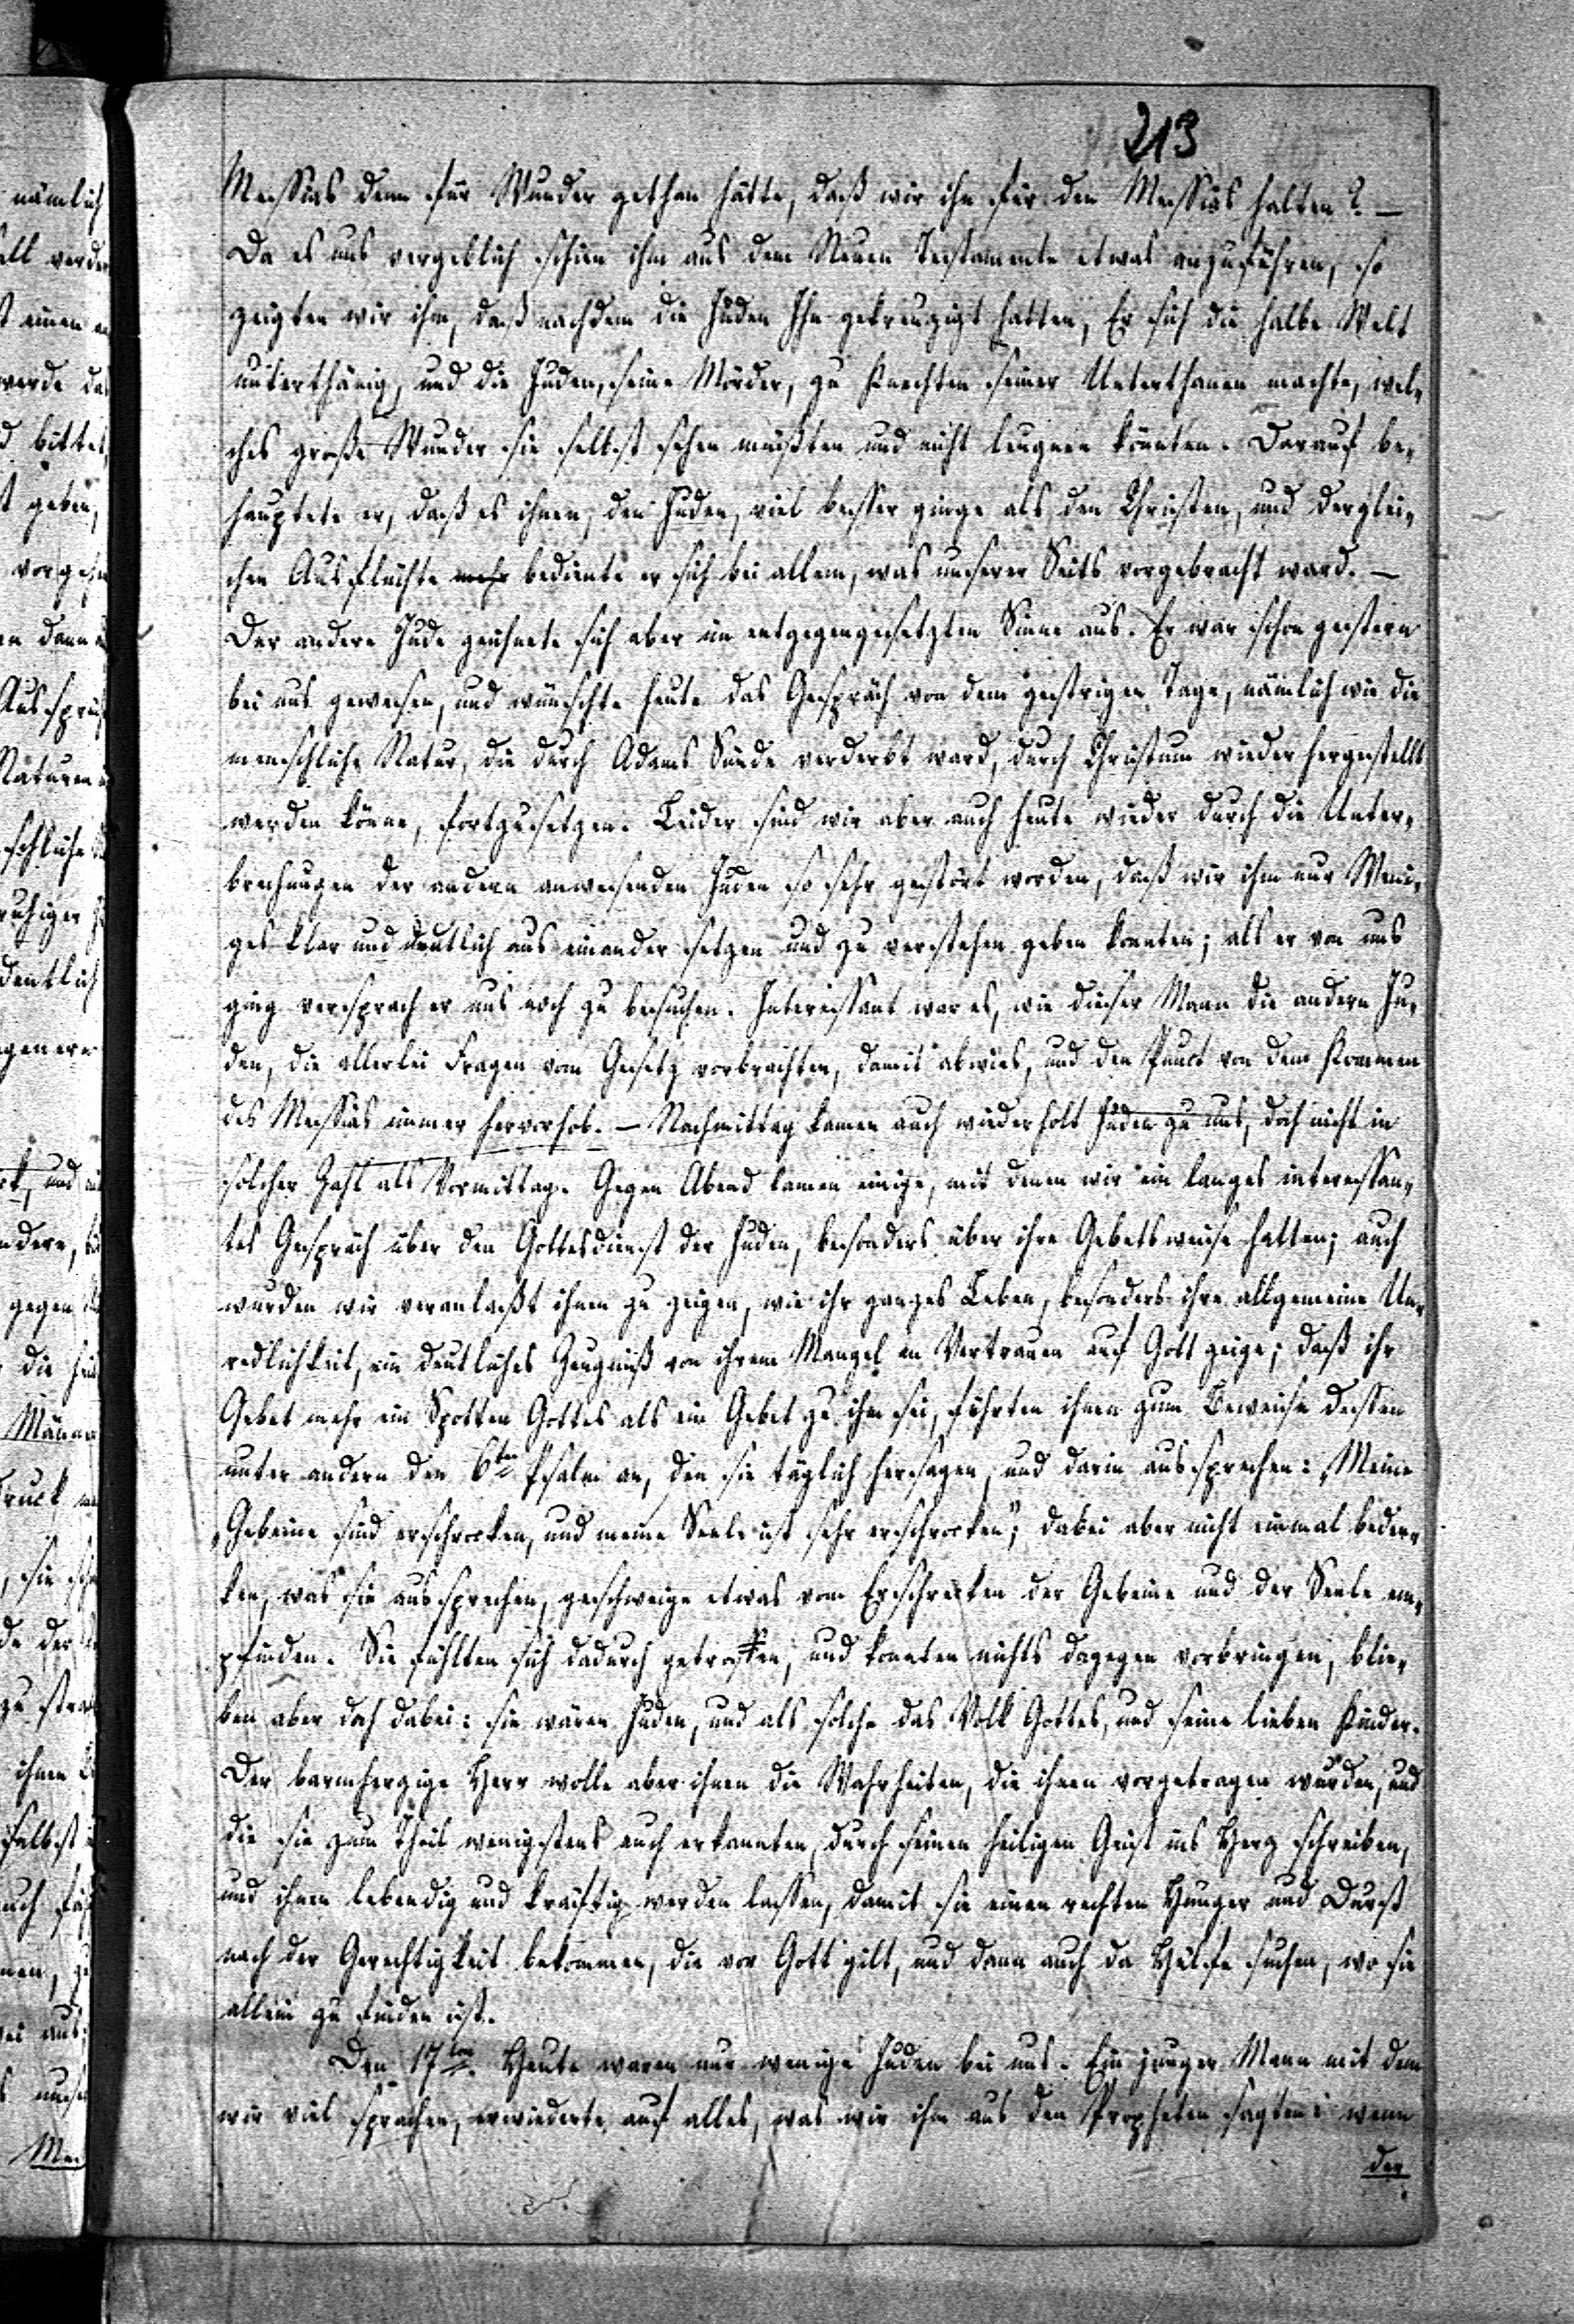 213
Messias denn für Wunder gethan hätte, daß wir ihn für den Messias halten? —
Da es uns vergeblich schien ihm aus dem Neuen Testamente etwas anzuführen, so
zeigten wir ihm, daß nachdem die Juden Ihn gekreuzigt hatten, Er sich die halbe Welt
unterthänig, und die Juden, seine Mörder, zu Knechten seiner Unterthanen machte, wel-
ches große Wunder sie selbst sehen müßten und nicht leugnen könnten. Darauf be-
hauptete er, daß es ihnen, den Juden, viel besser ginge als den Christen, und derglei-
chen Ausflüchte mehr bediente er sich bei allem, was unserer Seits vorgebracht ward. —
Der andere Jude zeichnete sich aber im entgegengesetzten Sinne aus. Er war schon gestern
bei uns gewesen, und wünschte heute das Gespräch von dem gestrigen Tage, nämlich wie die
menschliche Natur, die durch Adams Sünde verderbt ward, durch Christum wieder hergestellt
werden könne, fortzusetzen. Leider sind wir aber auch heute wieder durch die Unter-
brechungen der andern anwesenden Juden so sehr gestört worden, daß wir ihm nur Weni-
ges klar und deutlich aus einander setzen und zu verstehen geben konnten; als er von uns
ging versprach er uns noch zu besuchen. Interessant war es, wie dieser Mann die andern Ju-
den, die allerlei Fragen vom Gesetz vorbrachten, damit abwies, und den Punct von dem Kommen
des Messias immer hervorhob. — Nachmittag kamen auch wiederholt Juden zu uns, doch nicht in
solcher Zahl als Vormittag. Gegen Abend kamen einige, mit denen wir ein langes interessan-
tes Gespräch über den Gottesdienst der Juden, besonders über ihre Gebetsweise hatten; auch
wurden wir veranlaßt ihnen zu zeigen, wie ihr ganzes Leben, besonders ihre allgemeine Un-
redlichkeit, ein deutliches Zeugniß von ihrem Mangel an Vertrauen auf Gott zeige; daß ihr
Gebet mehr ein Spotten Gottes als ein Gebet zu ihm sei, führten ihnen zum Beweise dessen
unter andern den 6ten Psalm an, den sie täglich hersagen, und darin aussprechen: „Meine
„Gebeine sind erschrocken, und meine Seele ist sehr erschrocken"; dabei aber nicht einmal beden-
ken, was sie aussprechen, geschweige etwas vom Erschrecken der Gebeine und der Seele em-
pfinden. Sie fühlten sich dadurch getroffen, und konnten nichts dagegen vorbringen, blie-
ben aber doch dabei: sie wären Juden, und als solche das Volk Gottes, und seine lieben Kinder.
Der barmherzige Herr wolle aber ihnen die Wahrheiten, die ihnen vorgetragen wurden, und
die sie zum Theil wenigstens auch erkannten, durch seinen heiligen Geist ins Herz schreiben,
und ihnen lebendig und kräftig werden lassen, damit sie einen rechten Hunger und Durst
nach der Gerechtigkeit bekommen, die vor Gott gilt, und dann auch da Hülfe suchen, wo sie
allein zu finden ist.
Den 17ten. Heute waren nur wenige Juden bei uns. Ein junger Mann mit dem
wir viel sprachen, erwiederte auf alles, was wir ihm aus den Propheten sagten: wenn
der